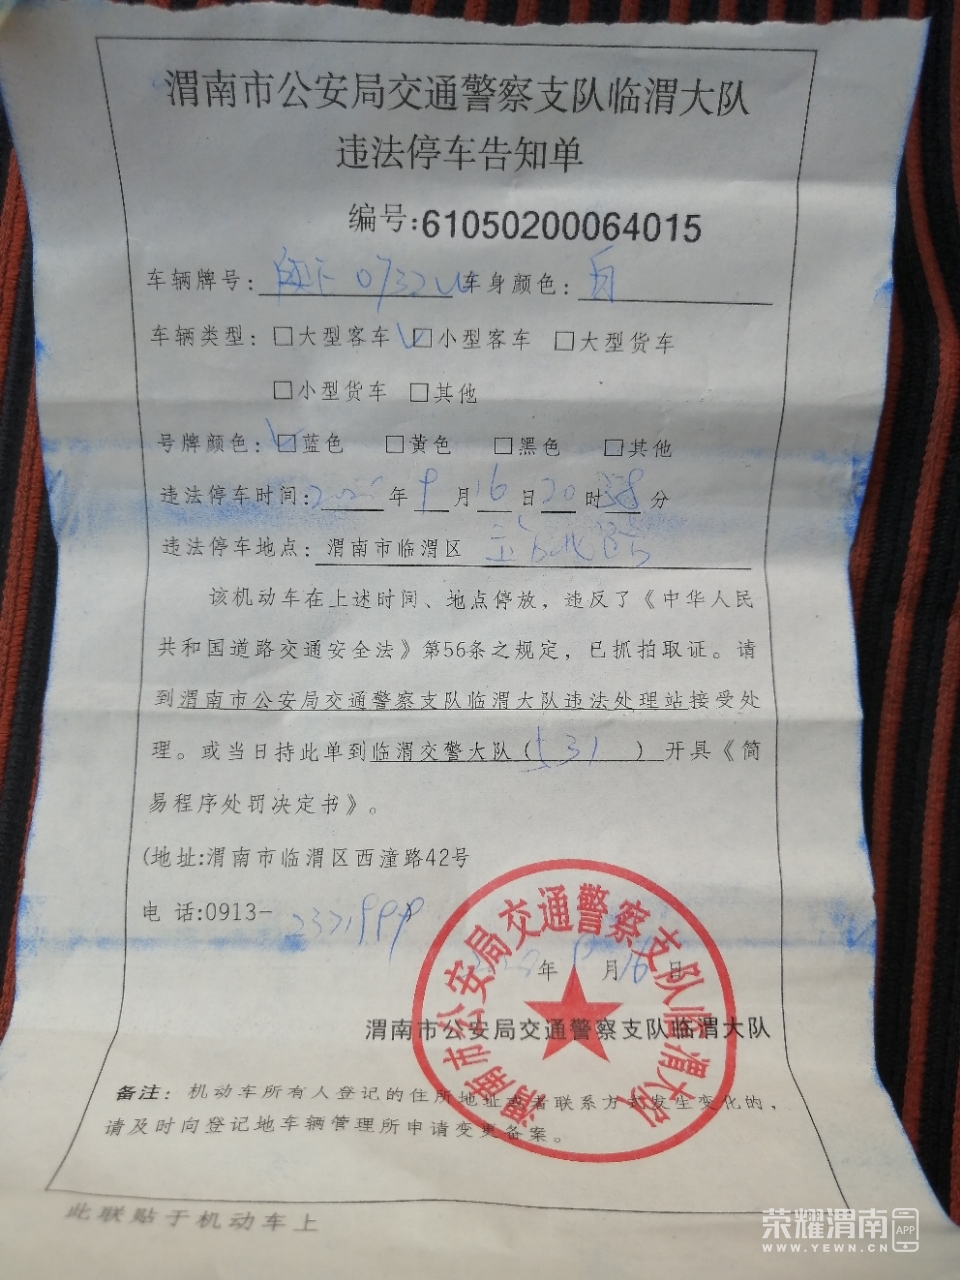 渭南市公安局交通警察支队临渭大队
违法停车告知单
编号:61050200064015
车辆牌号: 陕 0732 车身颜色: 白
车辆类型: □大型客车 ☑小型客车 □大型货车
□小型货车 □其他
号牌颜色: ☑蓝色 □黄色 □黑色 □其他
违法停车时间: 年 9 月 16 日 20 时 分
违法停车地点: 渭南市临渭区
该机动车在上述时间、地点停放，违反了《中华人民
共和国道路交通安全法》第56条之规定，已抓拍取证。请
到渭南市公安局交通警察支队临渭大队违法处理站接受处
理。或当日持此单到临渭交警大队( ) 开具《简
易程序处罚决定书》。
(地址:渭南市临渭区西潼路42号
电 话:0913-
年 9 月 16 日
渭南市公安局交通警察支队临渭大队
渭南市公安局交通警察支队临渭大队
备注: 机动车所有人登记的住所地址或者联系方式发生变化的，
请及时向登记地车辆管理所申请变更备案。
此联贴于机动车上
荣耀渭南 APP
WWW.YEWN.CN